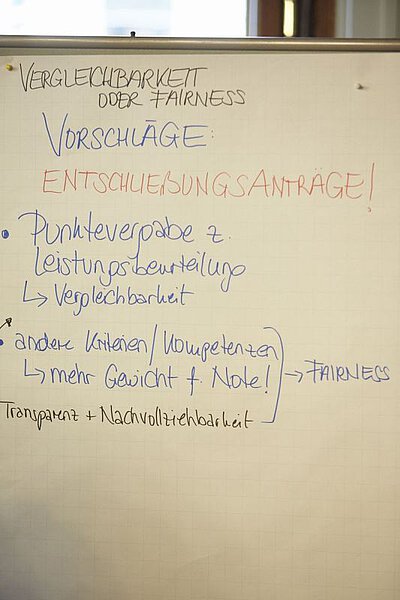 VERGLEICHBARKEIT
ODER FAIRNESS
VORSCHLÄGE:
ENTSCHLIEßUNGSANTRÄGE!
• Punktevergabe z.
Leistungsbeurteilung
↳ Vergleichbarkeit
• andere Kriterien/Kompetenzen
↳ mehr Gewicht f. Note! → FAIRNESS
Transparenz + Nachvollziehbarkeit